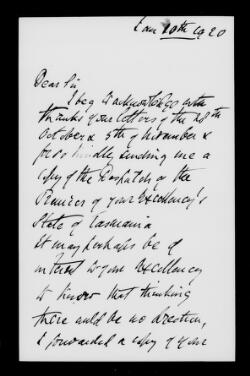 20th 1920
Dear Sir
I beg to acknowledge with
thanks your letters of the 28th
October & 5th of November &
for so kindly sending me a
copy of the Despatch of the
Premier of your Excellency's
State of Tasmania
It may perhaps be of
interest to your Excellency
to know that thinking
there could be no objection,
I forwarded a copy of your